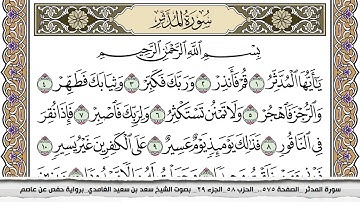 سُورَةُ المُدَّثِّرِ
بِسْمِ ٱللَّهِ ٱلرَّحْمَٰنِ ٱلرَّحِيمِ
يَٰٓأَيُّهَا ٱلْمُدَّثِّرُ ١ قُمْ فَأَنذِرْ ٢ وَرَبَّكَ فَكَبِّرْ ٣ وَثِيَابَكَ فَطَهِّرْ ٤
وَٱلرُّجْزَ فَٱهْجُرْ ٥ وَلَا تَمْنُن تَسْتَكْثِرُ ٦ وَلِرَبِّكَ فَٱصْبِرْ ٧ فَإِذَا نُقِرَ
فِى ٱلنَّاقُورِ ٨ فَذَٰلِكَ يَوْمَئِذٍ يَوْمٌ عَسِيرٌ ٩ عَلَى ٱلْكَٰفِرِينَ غَيْرُ يَسِيرٍ ١٠
سورة المدثر _ الصفحة ٥٧٥ _ الحزب ٥٨ _ الجزء ٢٩ _ بصوت الشيخ سعد بن سعيد الغامدي _ برواية حفص عن عاصم